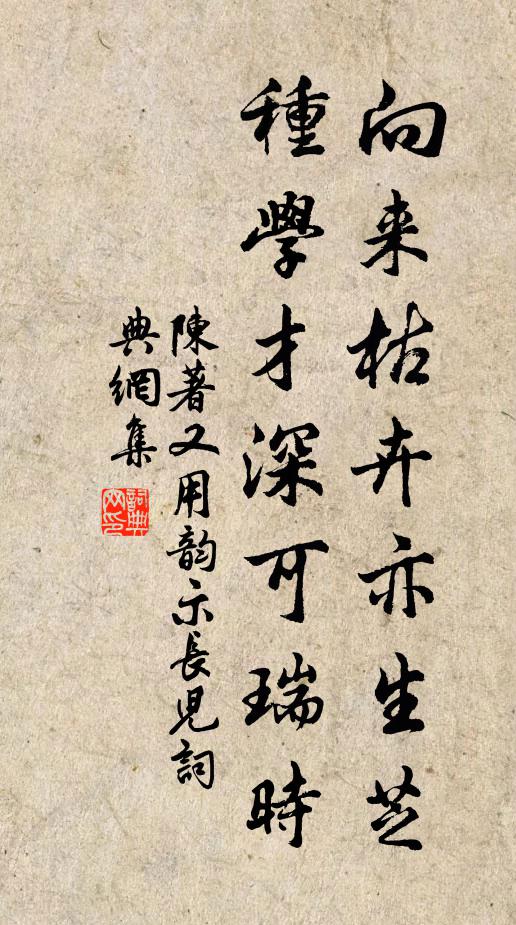 向来枯卉亦生芝
種學才深可瑞時
陳著又用韵示長児詞
典網集
詞典
网印